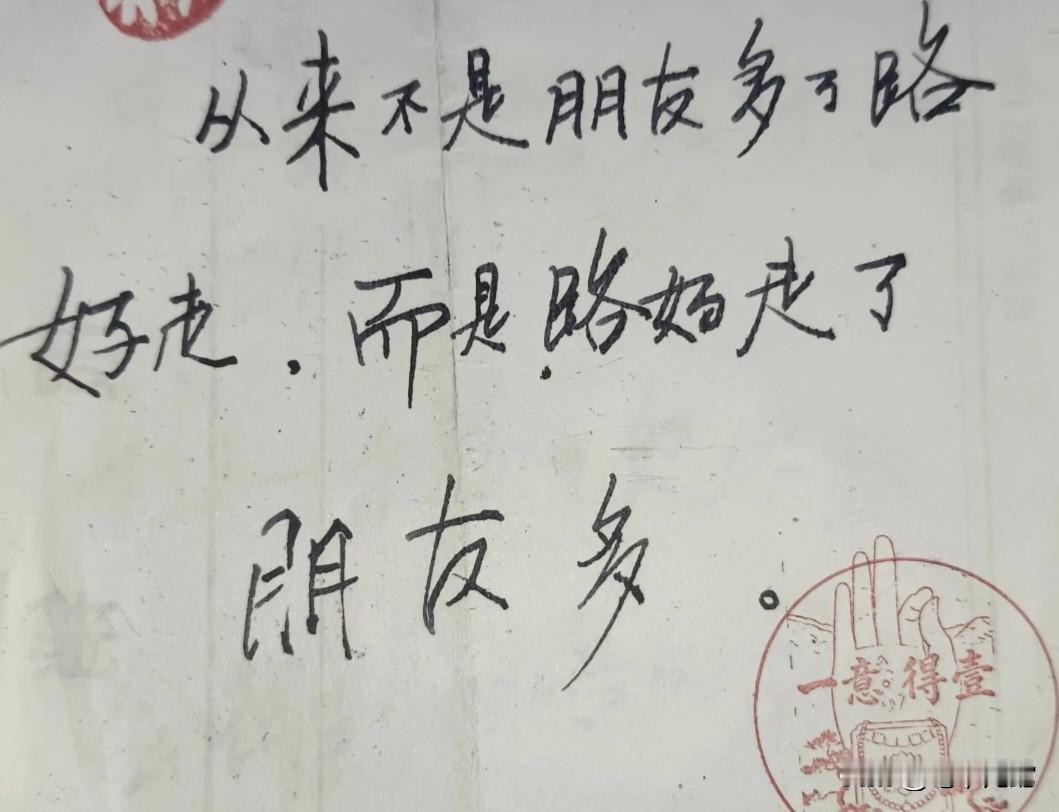 从来不是朋友多了路
好走.而是路好走了
朋友多。
一意得壹